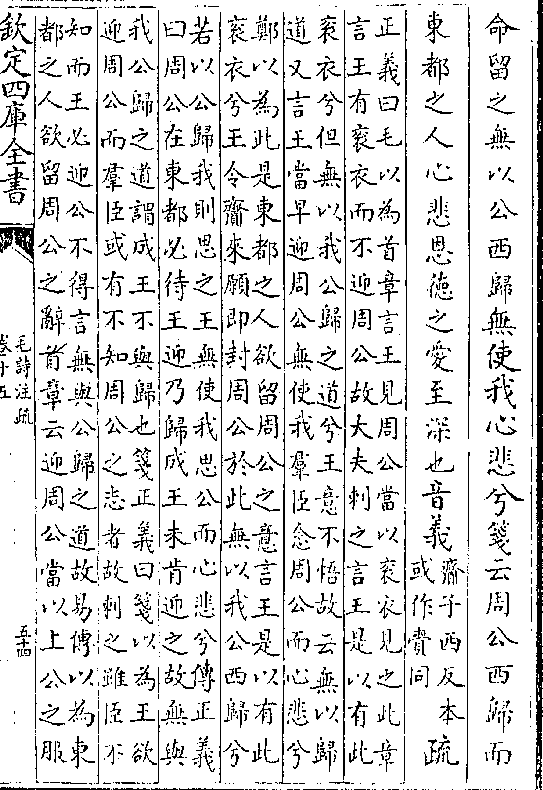 命留之無以公西歸無使我心悲兮箋云周公西歸而
東都之人心悲思德之愛至深也音義齎子西反本或作賷同疏
正義曰毛以為首章言王見周公當以衮衣見之此章
言王有衮衣而不迎周公故大夫刺之言王是以有此
衮衣兮但無以我公歸之道兮王意不悟故云無以歸
道又言王當早迎周公無使我羣臣念周公而心悲兮
鄭以為此是東都之人欲留周公之意言王是以有此
衮衣兮王令齎來願即封周公於此無以我公西歸兮
若以公歸我則思之王無使我思公而心悲兮傳正義
曰周公在東都必待王迎乃歸成王未肯迎之故無與
我公歸之道謂成王不與歸也箋正義曰箋以為王欲
迎周公而羣臣或有不知周公之志者故刺之雖臣不
知而王必迎公不得言無與公歸之道故易傳以為東
都之人欲留周公之辭首章云迎周公當以上公之服
欽定四庫全書
毛詩注疏
卷十五
五十四